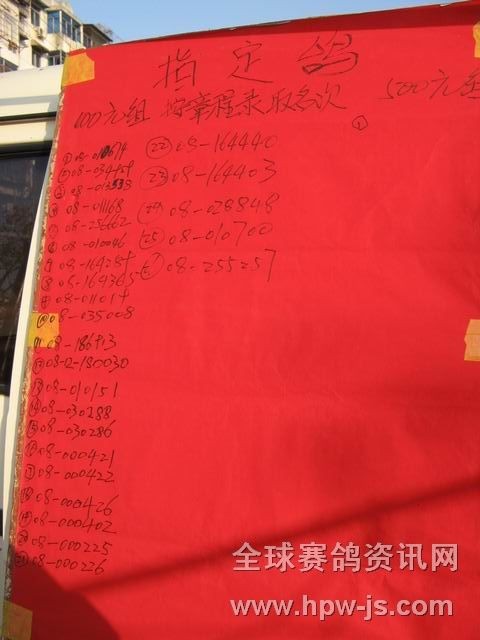 指定鸽
100元组 按章程录取名次
500元组
①
① 08-010674
② 08-034454
08-011168
⑤ 08-256662
⑥ 08-010046
08-164254
⑧ 08-164365
⑨ 08-011014
⑩ 08-035008
⑪ 08-186413
⑫ 08-12-180030
⑬ 08-010151
⑭ 08-030288
⑮ 08-030286
⑯ 08-000421
⑰ 08-000422
⑱ 08-000426
⑲ 08-000402
⑳ 08-000225
㉑ 08-000226
㉒ 08-164440
㉓ 08-164403
㉔ 08-028848
㉕ 08-010700
08-255257
全球赛鸽资讯网
www.hpw-js.com